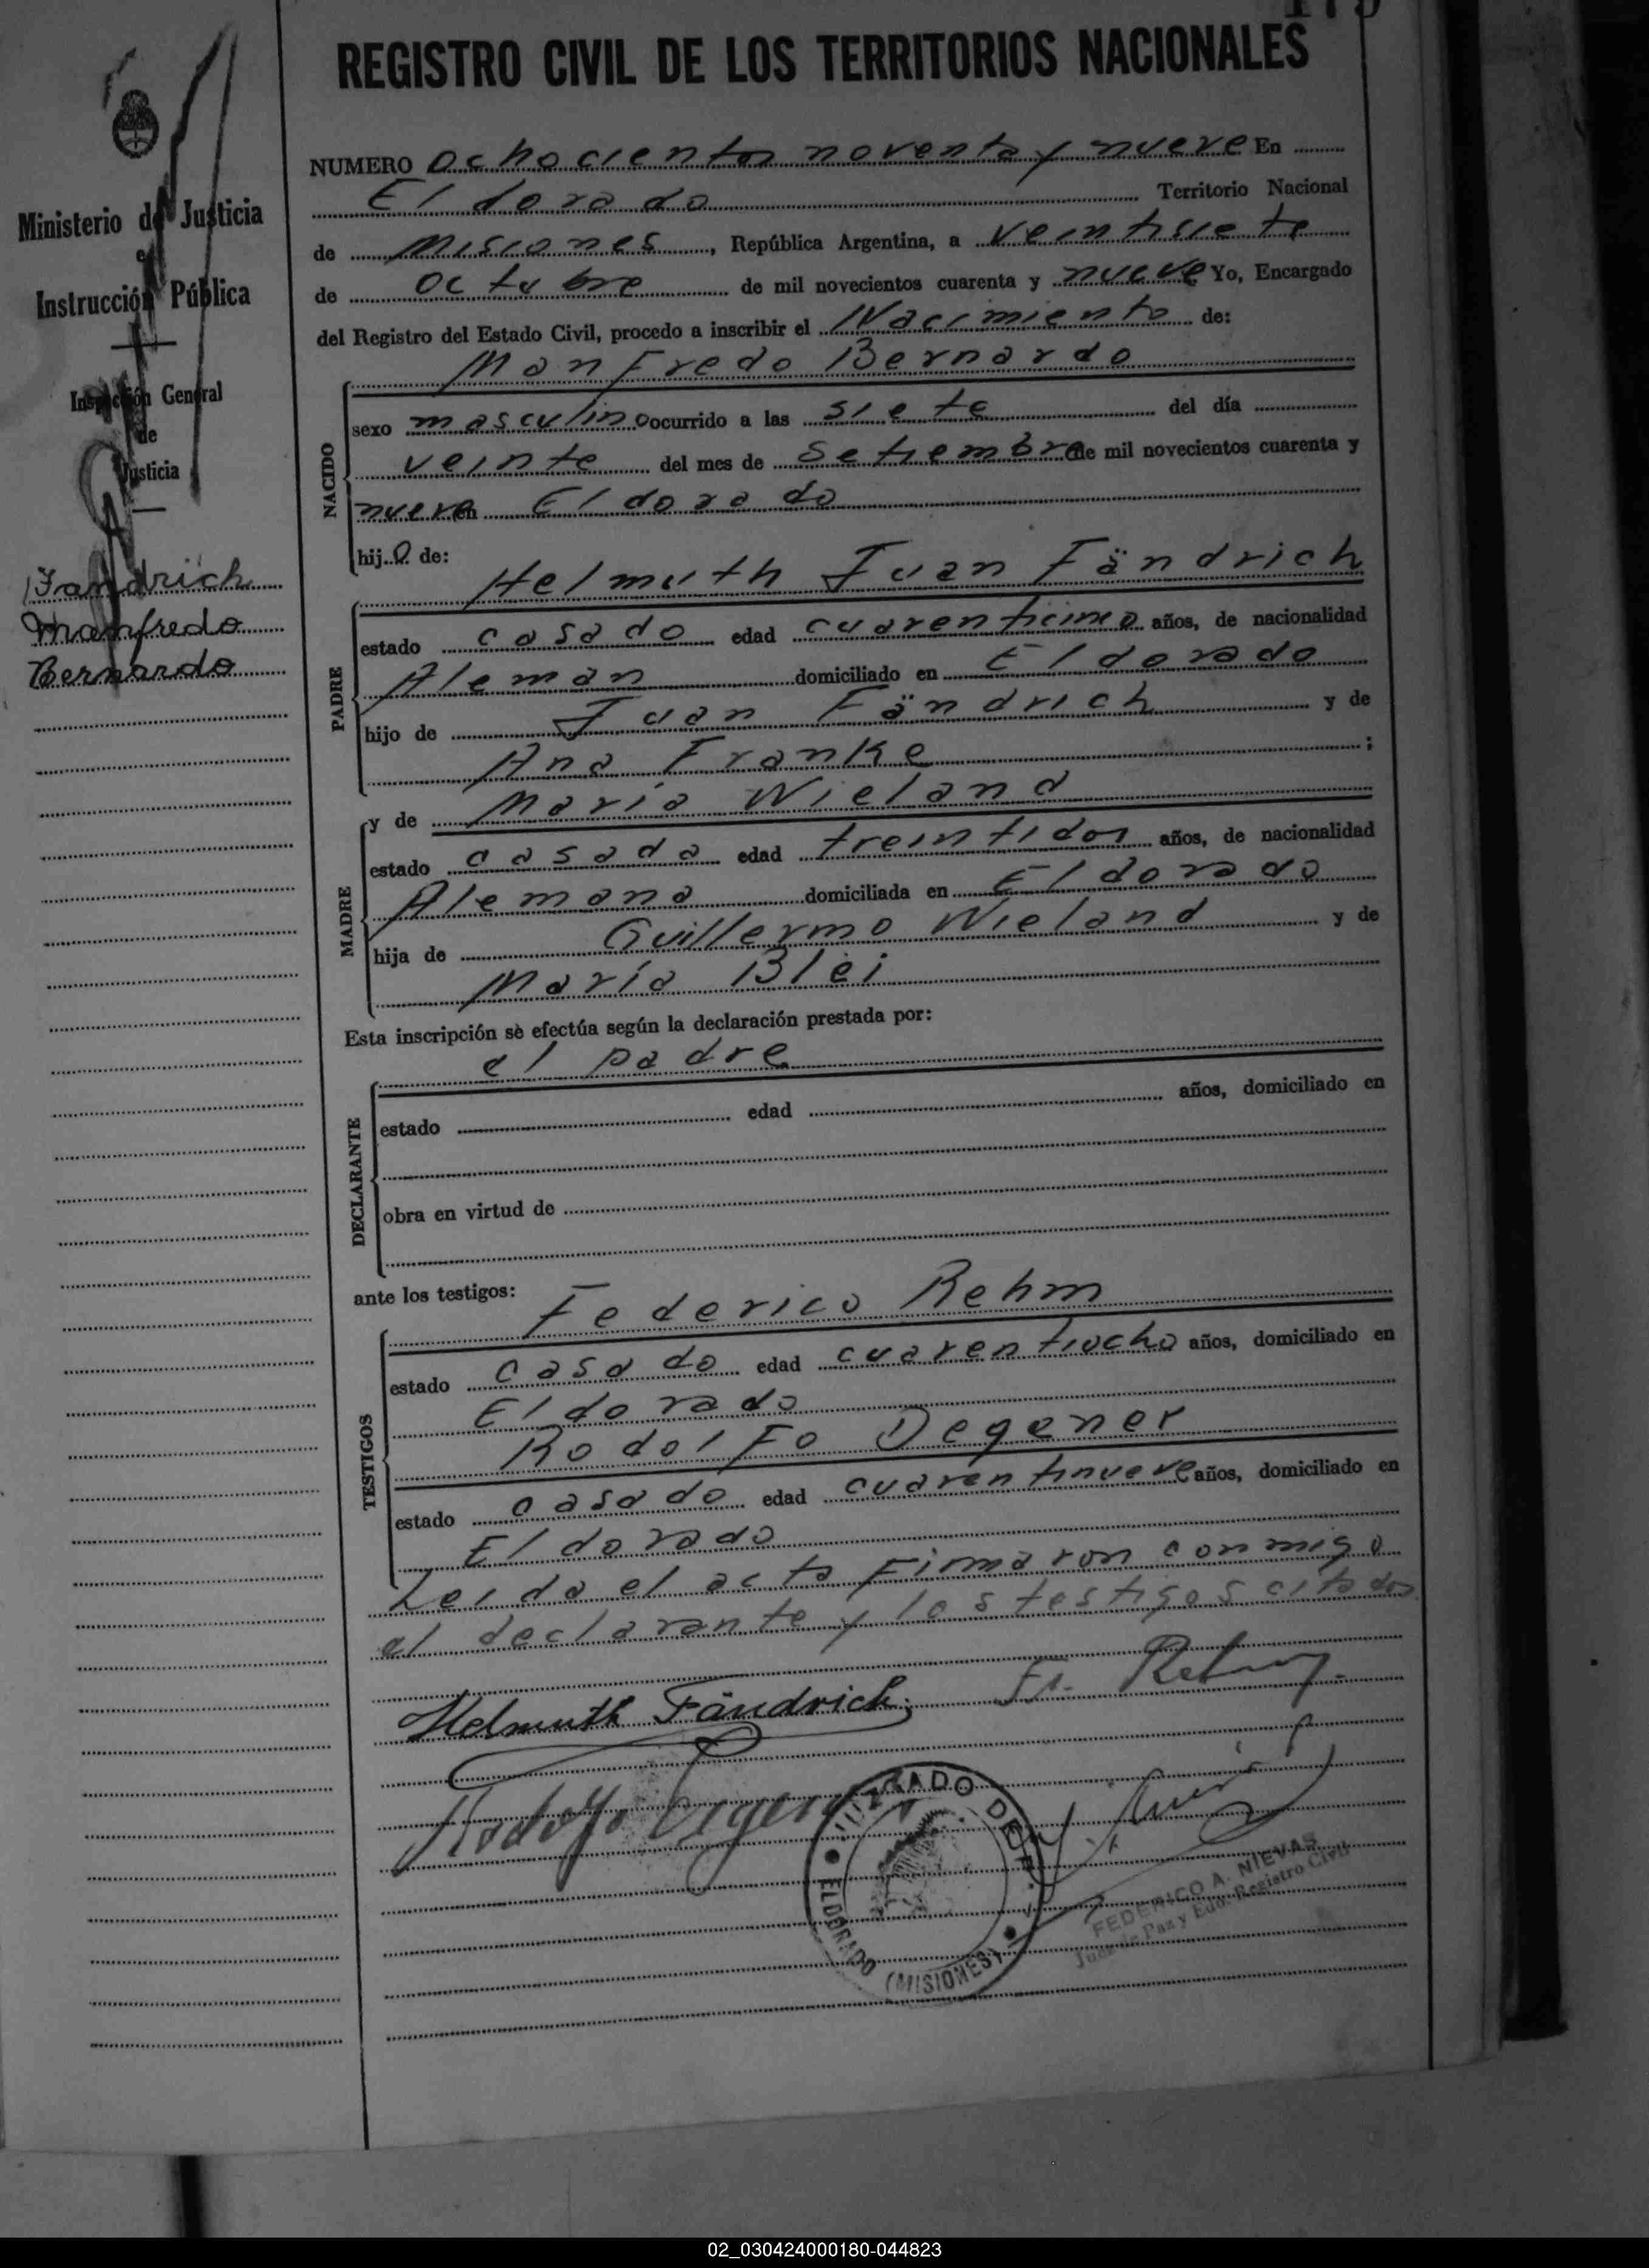 179
REGISTRO CIVIL DE LOS TERRITORIOS NACIONALES
Ministerio de Justicia
e
Instrucción Pública
Inspección General
de
Justicia
Fandrich
Manfredo
Bernardo
NUMERO ochocientos noventa y nueve En
Eldorado Territorio Nacional
de Misiones, República Argentina, a veintisiete
de octubre de mil novecientos cuarenta y nueve Yo, Encargado
del Registro del Estado Civil, procedo a inscribir el Nacimiento de:
Manfredo Bernardo
NACIDO
sexo masculino ocurrido a las siete del día
veinte del mes de Setiembre de mil novecientos cuarenta y
nueve en Eldorado
hijo de: Helmuth Juan Fändrich
PADRE
estado casado edad años, de nacionalidad
Alemán domiciliado en Eldorado
hijo de Juan Fändrich y de
Ana Franke ;
y de María Wieland
MADRE
estado casada edad treintidos años, de nacionalidad
Alemana domiciliada en Eldorado
hija de Guillermo Wieland y de
María Blei
Esta inscripción sè efectúa según la declaración prestada por:
el padre
DECLARANTE
estado edad años, domiciliado en
obra en virtud de
ante los testigos: Federico Rehm
TESTIGOS
estado casado edad cuarentiocho años, domiciliado en
Eldorado
Rodolfo Degener
estado casado edad cuarentinueve años, domiciliado en
Eldorado
Leida el acta firmaron conmigo
el declarante y los testigos citados
Helmuth Fändrich. Fr. Rehm
Rodolfo Degener
JUZGADO DE P.
ELDORADO (MISIONES)
FEDERICO A. NIEVAS
Juez de Paz y Enc. Registro Civil
02_030424000180-044823